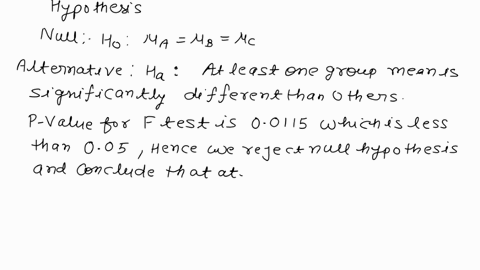 Hypothesis
Null:- H₀: μA = μB = μC
Alternative: Ha: At least one group mean is
significantly different than others.
P-Value for F test is 0.0115 which is less
than 0.05, Hence we reject null hypothesis
and conclude that at.